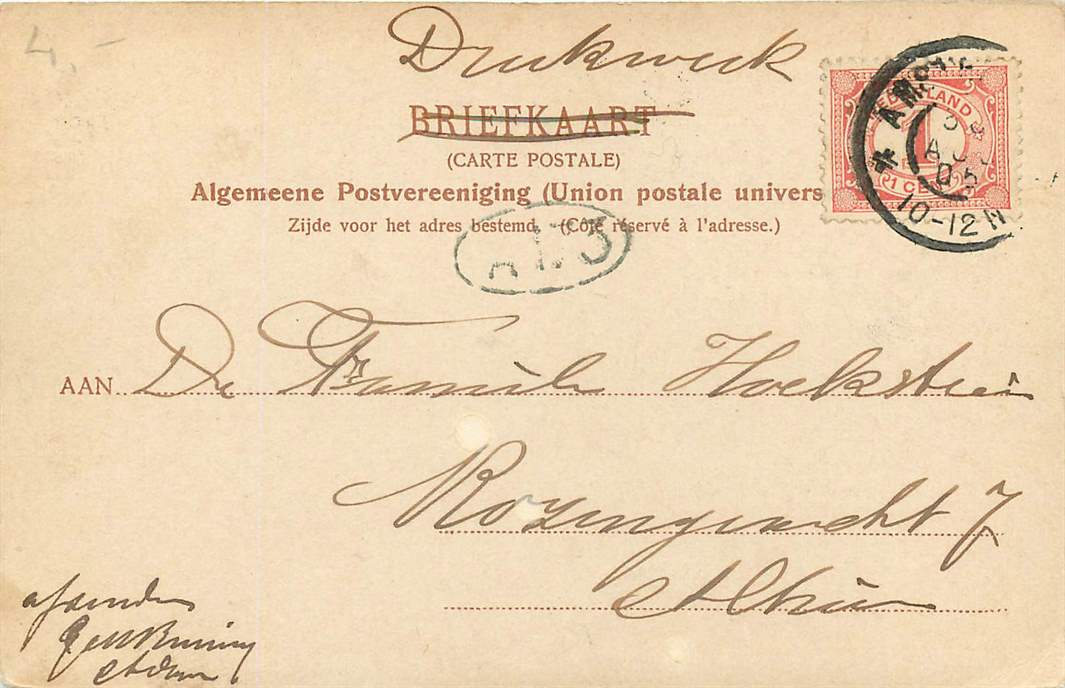 4,-
Drukwerk
BRIEFKAART
(CARTE POSTALE)
Algemeene Postvereeniging (Union postale univers
Zijde voor het adres bestemd. (Côté réservé à l'adresse.)
NEDERLAND
1
1 CENT
10-12 N
AAN De Familie Hoekstra
Rozengracht 7
Alhier
afzender
A'dam